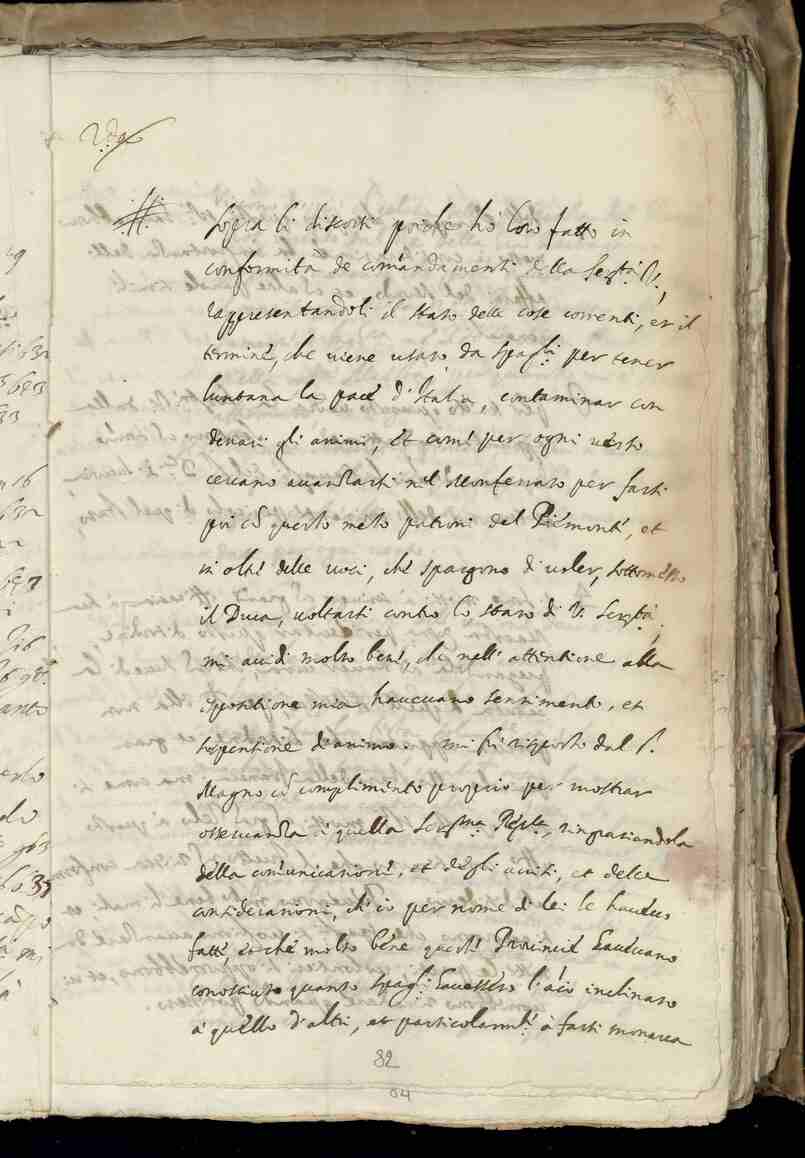 Sopra li discorsi poiche hò loro fatto in
conformità de comandamenti della Ser.tà V.,
rappresentandoli il stato delle cose correnti, et il
termine, che viene usato da Spag.li per tener
luntana la pace d'Italia, contaminar con
denari gli animi, et come per ogni verso
cercano avanzarsi nel Monferrato per farsi
poi cõ questo mezo patroni del Piemonte, et
in oltre delle voci, che spargono di voler, sottomesso
il Duca, voltarsi contro lo stato di V. Ser.tà;
mi avidi molto bene, che nell'attentione alla
espositione mia havevano sentimento, et
sospensione d'animo. mi fù risposto dal s.r
Magno cõ complimento proprio per mostrar
osservanza à quella Ser.ma Rep.ca, ringratiandola
della comunicatione, et degli avisi, et delle
considerationi, che io per nome di lei le havevo
fatte, et che molto bene queste Provincie havevano
conosciuto quanto Spag.li havessero l'
inclinato
à quello d'altri, et particolarm.te à farsi monarca
82
84